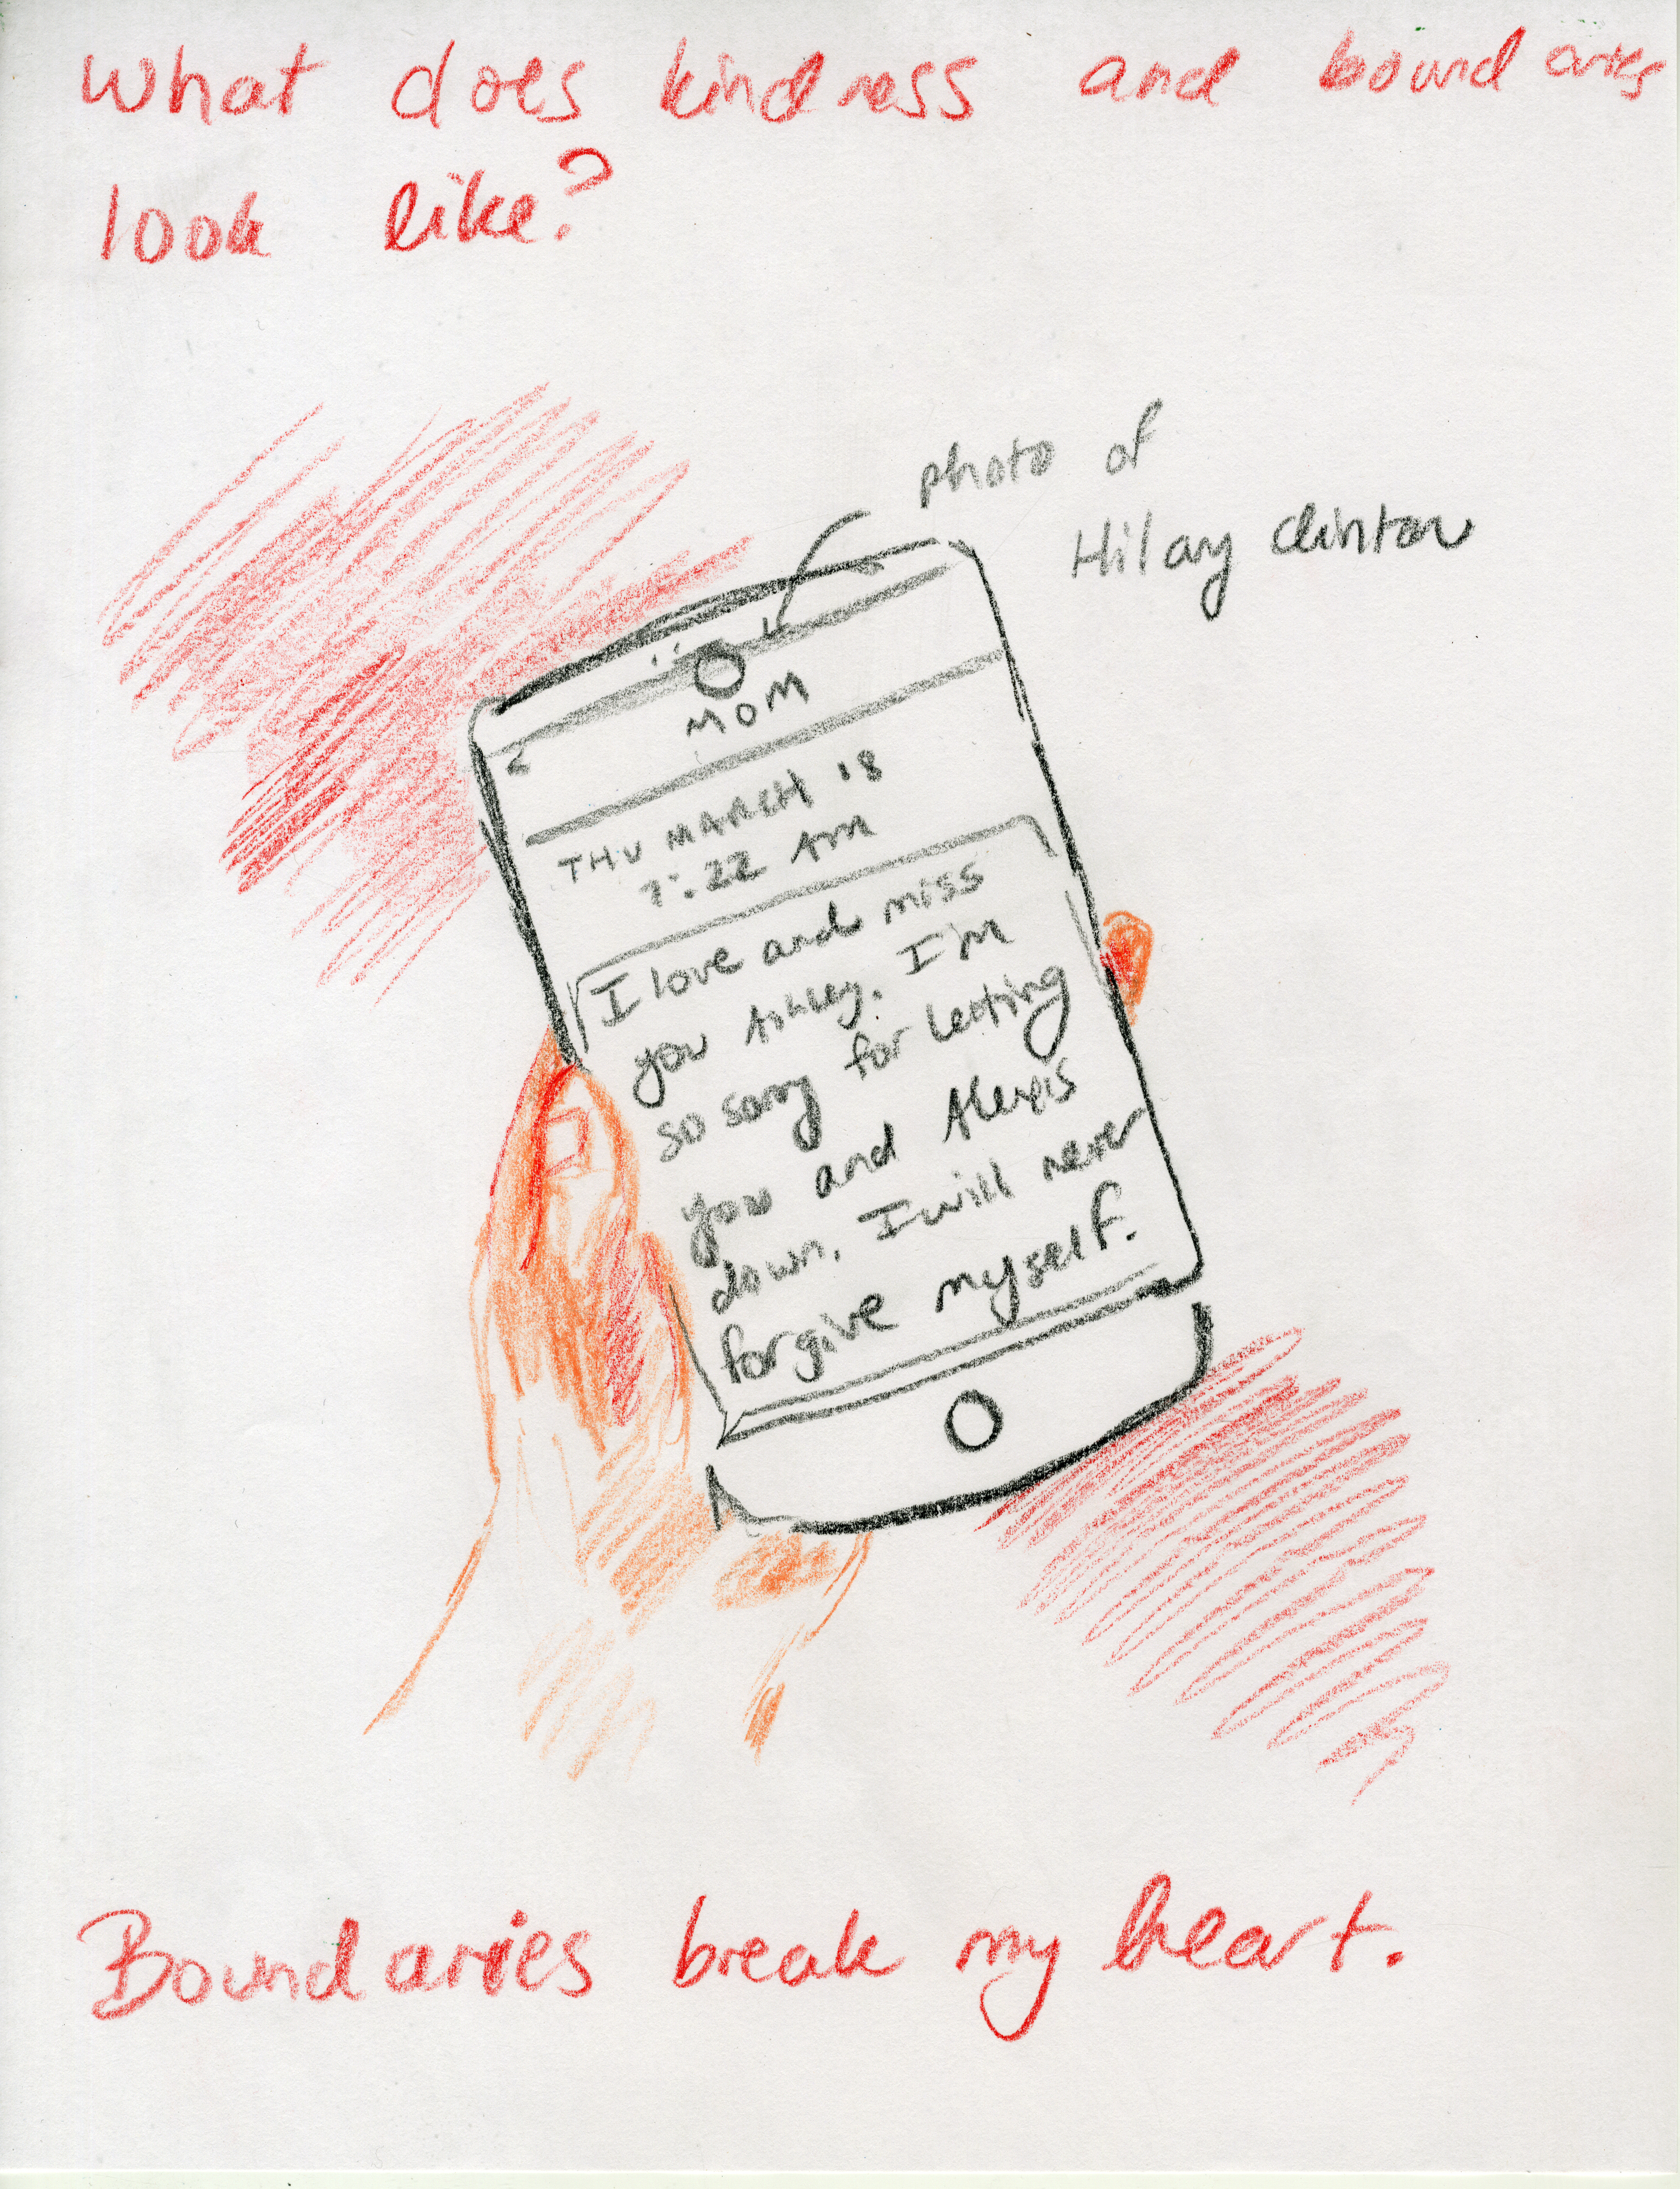 What does kindness and boundaries
look like?
photo of
Hilary Clinton
MOM
THU MARCH 18
7:22 AM
I love and miss
you Ashley. I'm
so sorry for letting
you and Alexis
down. I will never
forgive myself.
Boundaries break my heart.